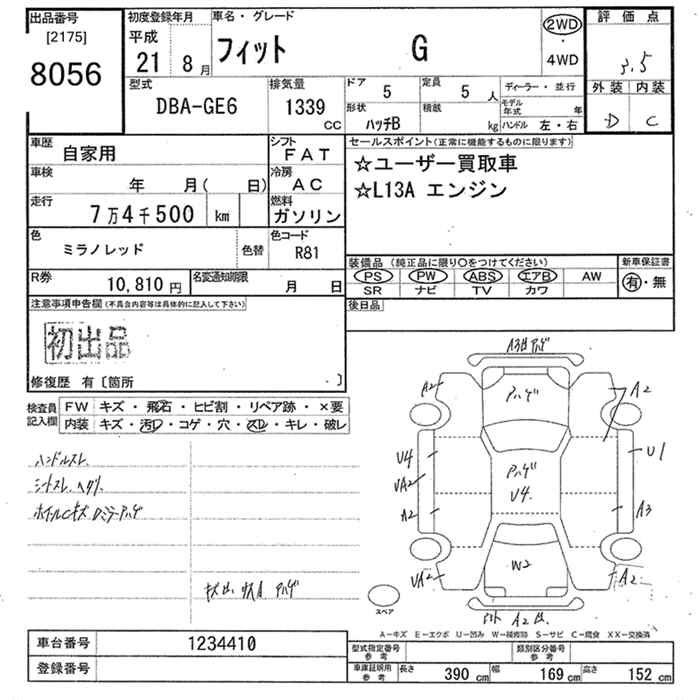 出品番号
[2175]
8056
初度登録年月
平成
21 8月
車名・グレード
フィット G
2WD
・
4WD
評価点
3.5
外装 内装
D C
型式
DBA-GE6
排気量
1339
CC
ドア 5
定員 5人
形状
ハッチB
積載 kg
ディーラー・並行
モデル年式 年
ハンドル 左・右
車歴
自家用
シフト
FAT
車検
年 月( 日)
冷房
AC
走行
7万4千500 km
燃料
ガソリン
色
ミラノレッド
色替
色コード
R81
R券
10,810円
名変通知期限
月 日
セールスポイント(正常に機能するものに限ります)
☆ユーザー買取車
☆L13A エンジン
装備品 (純正品に限り○をつけてください)
PS PW ABS エアB AW
SR ナビ TV カワ
新車保証書
有・無
後日品
注意事項申告欄(不具合内容等は具体的に記入して下さい)
初出品
修復歴 有〔箇所 .〕
検査員
記入欄
FW キズ・飛石・ヒビ割・リペア跡・×要
内装 キズ・汚レ・コゲ・穴・スレ・キレ・破レ
ハンドルスレ
シートスレ
A2
ハゲ
A2
U4
UA2
A2
ハゲ
U4
U1
A3
UA2
W2
A2
スペア
A2
A−キズ E−エクボ U−凹み W−補修跡 S−サビ C−腐食 XX−交換済
車台番号
1234410
登録番号
型式指定番号
参考
類別区分番号
参考
車庫証明用
参考
長さ 390 cm
幅 169 cm
高さ 152 cm